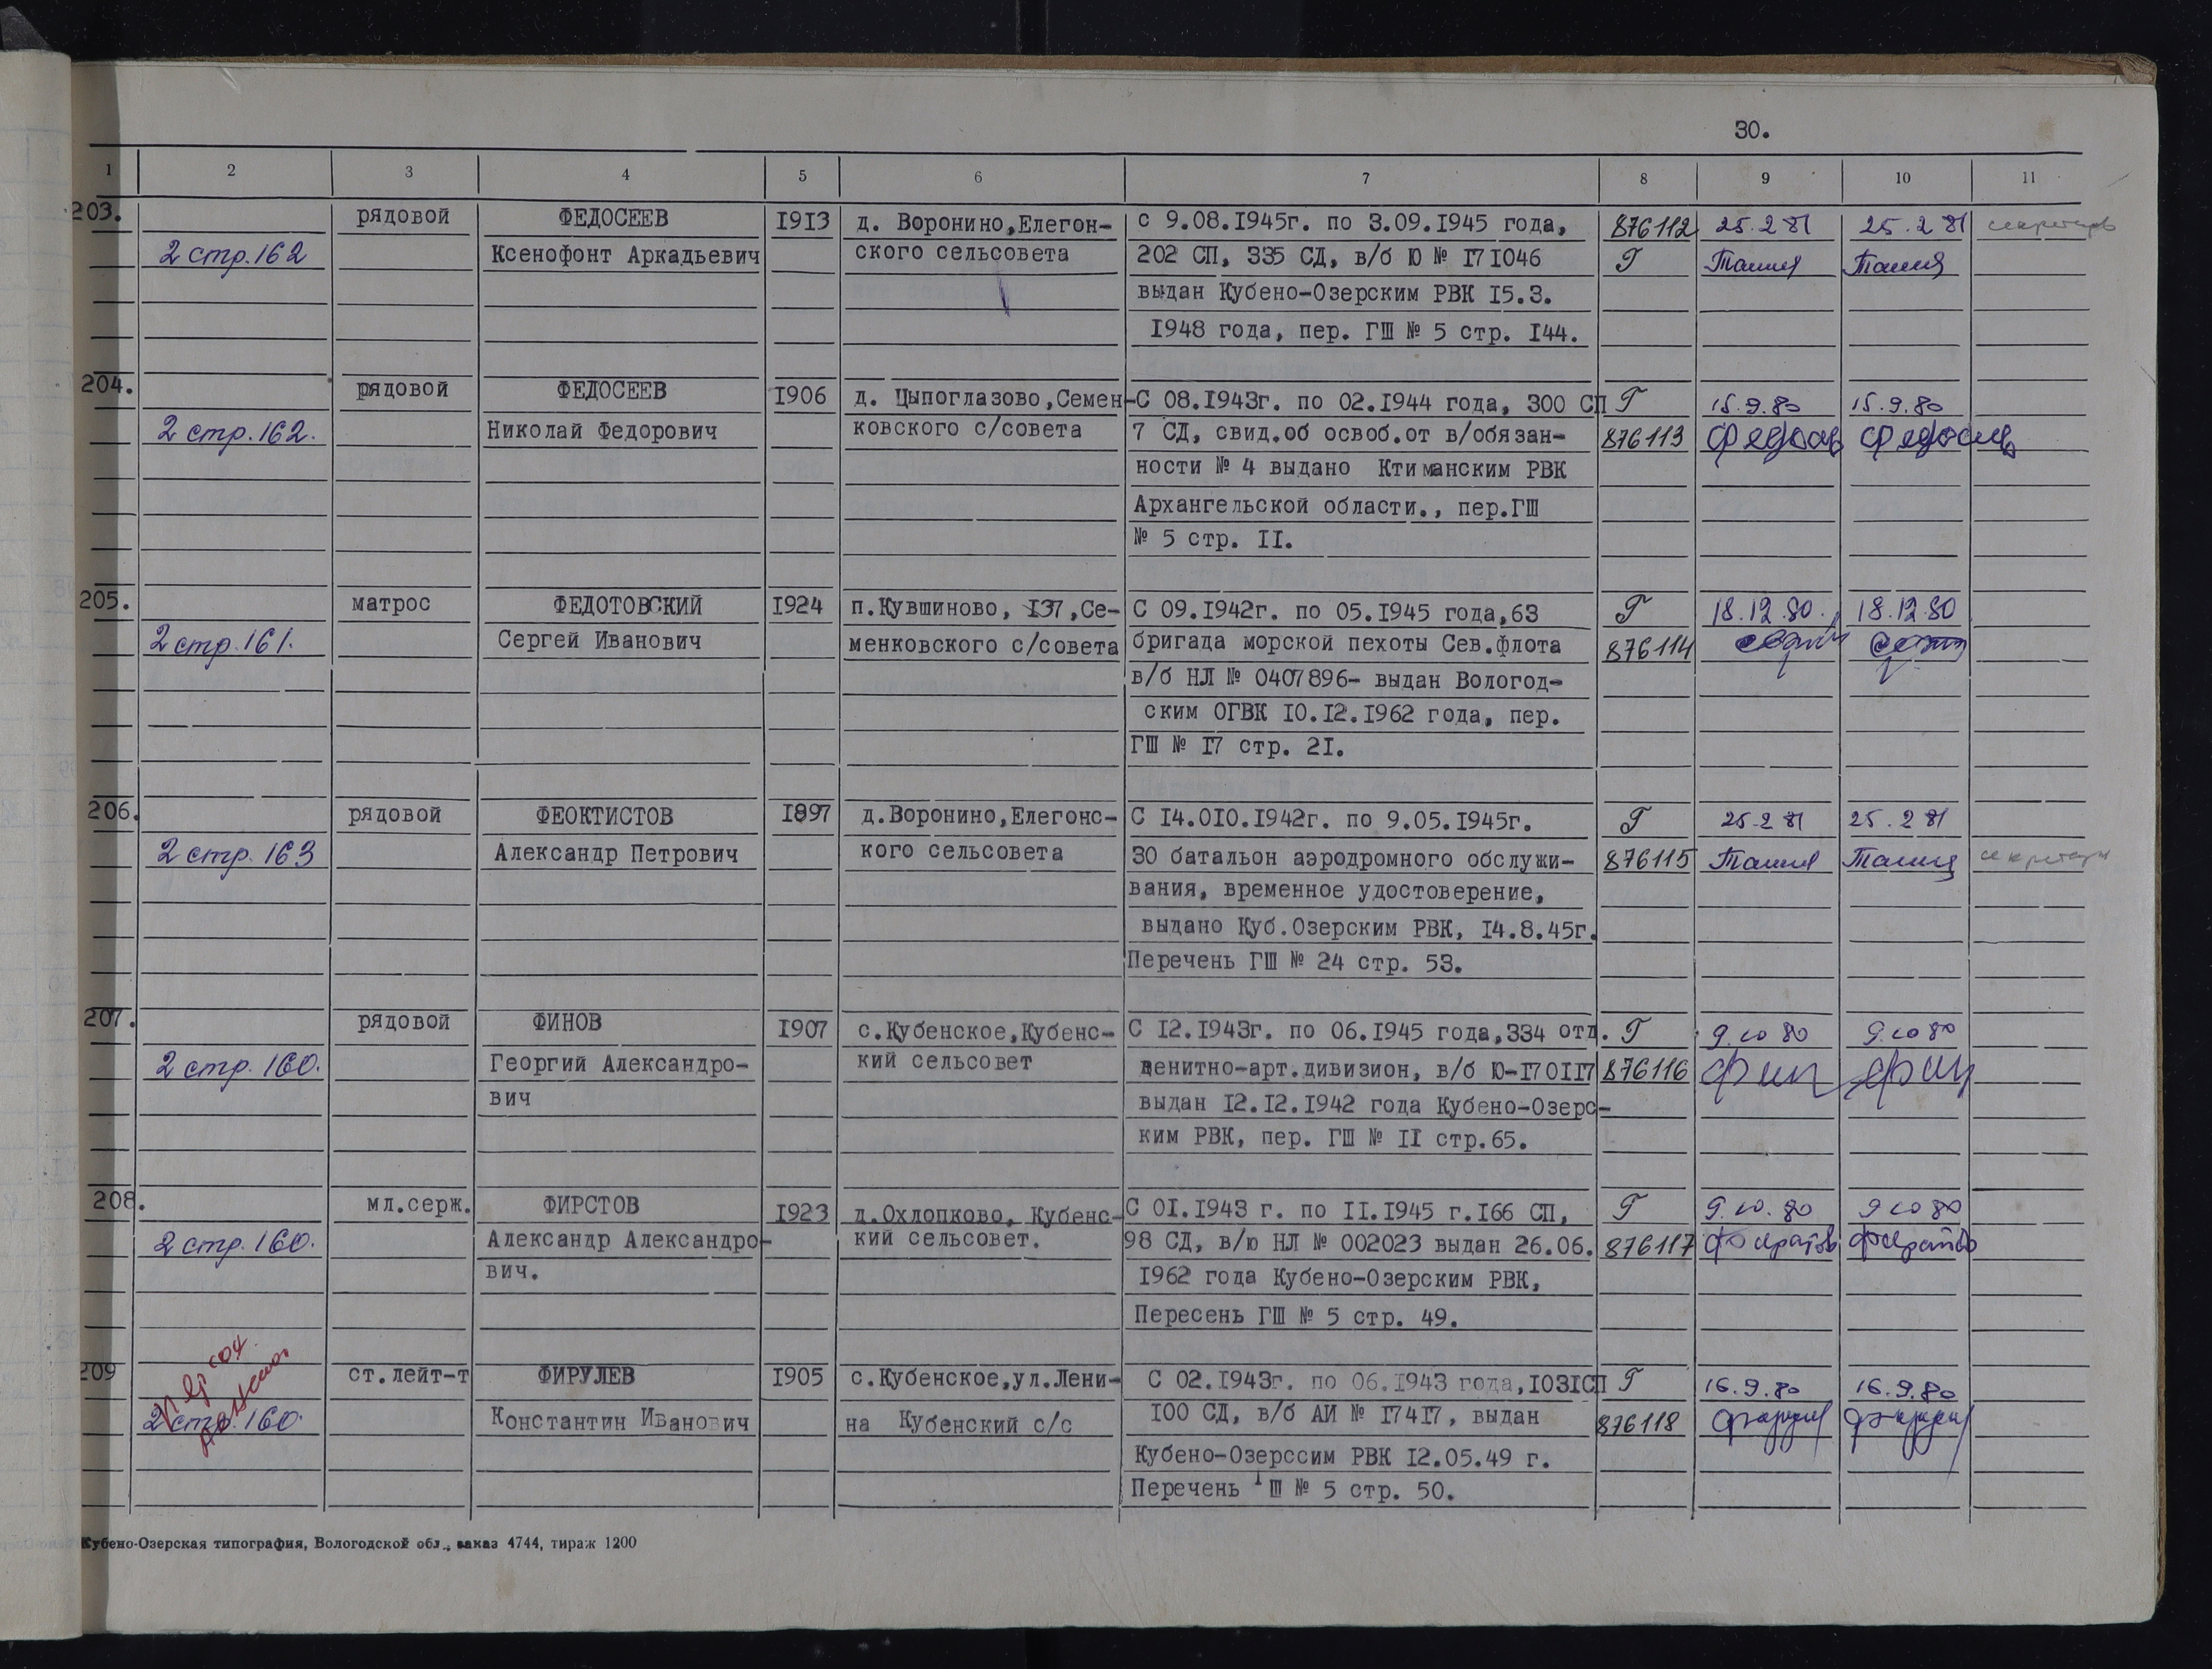 30.
1 2 3 4 5 6 7 8 9 10 11
203. рядовой ФЕДОСЕЕВ 1913 д. Воронино,Елегон- с 9.08.1945г. по 3.09.1945 года, 876112 25.2 81 25.2 81 секретарь
2 стр.162 Ксенофонт Аркадьевич ского сельсовета 202 СП, 335 СД, в/б Ю № 171046 Г
выдан Кубено-Озерским РВК 15.3.
1948 года, пер. ГШ № 5 стр. 144.
204. рядовой ФЕДОСЕЕВ 1906 д. Цыпоглазово,Семен- С 08.1943г. по 02.1944 года, 300 СП Г 15.9.80 15.9.80
2 стр.162. Николай Федорович ковского с/совета 7 СД, свид.об освоб.от в/обязан- 876113
ности № 4 выдано Ктиманским РВК
Архангельской области., пер.ГШ
№ 5 стр. 11.
205. матрос ФЕДОТОВСКИЙ 1924 п.Кувшиново, 137,Се- С 09.1942г. по 05.1945 года,63 Г 18.12.80. 18.12.80
2 стр.161. Сергей Иванович менковского с/совета бригада морской пехоты Сев.флота 876114
в/б НЛ № 0407896- выдан Вологод-
ским ОГВК 10.12.1962 года, пер.
ГШ № 17 стр. 21.
206. рядовой ФЕОКТИСТОВ 1897 д.Воронино,Елегонс- С 14.010.1942г. по 9.05.1945г. Г 25.2 81 25.2 81
2 стр. 163 Александр Петрович кого сельсовета 30 батальон аэродромного обслужи- 876115 секретарь
вания, временное удостоверение,
выдано Куб.Озерским РВК, 14.8.45г.
Перечень ГШ № 24 стр. 53.
207. рядовой ФИНОВ 1907 с.Кубенское,Кубенс- С 12.1943г. по 06.1945 года,334 отд. Г 9.10 80 9.10 80
2 стр. 160. Георгий Александро- кий сельсовет зенитно-арт.дивизион, в/б Ю-170117 876116
вич выдан 12.12.1942 года Кубено-Озерс-
ким РВК, пер. ГШ № 11 стр.65.
208. мл.серж. ФИРСТОВ 1923 д.Охлопково, Кубенс- С 01.1943 г. по 11.1945 г.166 СП, Г 9.10.80 9 10 80
2 стр. 160. Александр Александро- кий сельсовет. 98 СД, в/ю НЛ № 002023 выдан 26.06. 876117
вич. 1962 года Кубено-Озерским РВК,
Пересень ГШ № 5 стр. 49.
209 ст.лейт-т ФИРУЛЕВ 1905 с.Кубенское,ул.Лени- С 02.1943г. по 06.1943 года,1031СП Г 16.9.80 16.9.80
2 стр. 160. Константин Иванович на Кубенский с/с 100 СД, в/б АИ № 17417, выдан 876118
Кубено-Озерссим РВК 12.05.49 г.
Перечень ГШ № 5 стр. 50.
Кубено-Озерская типография, Вологодской обл., заказ 4744, тираж 1200